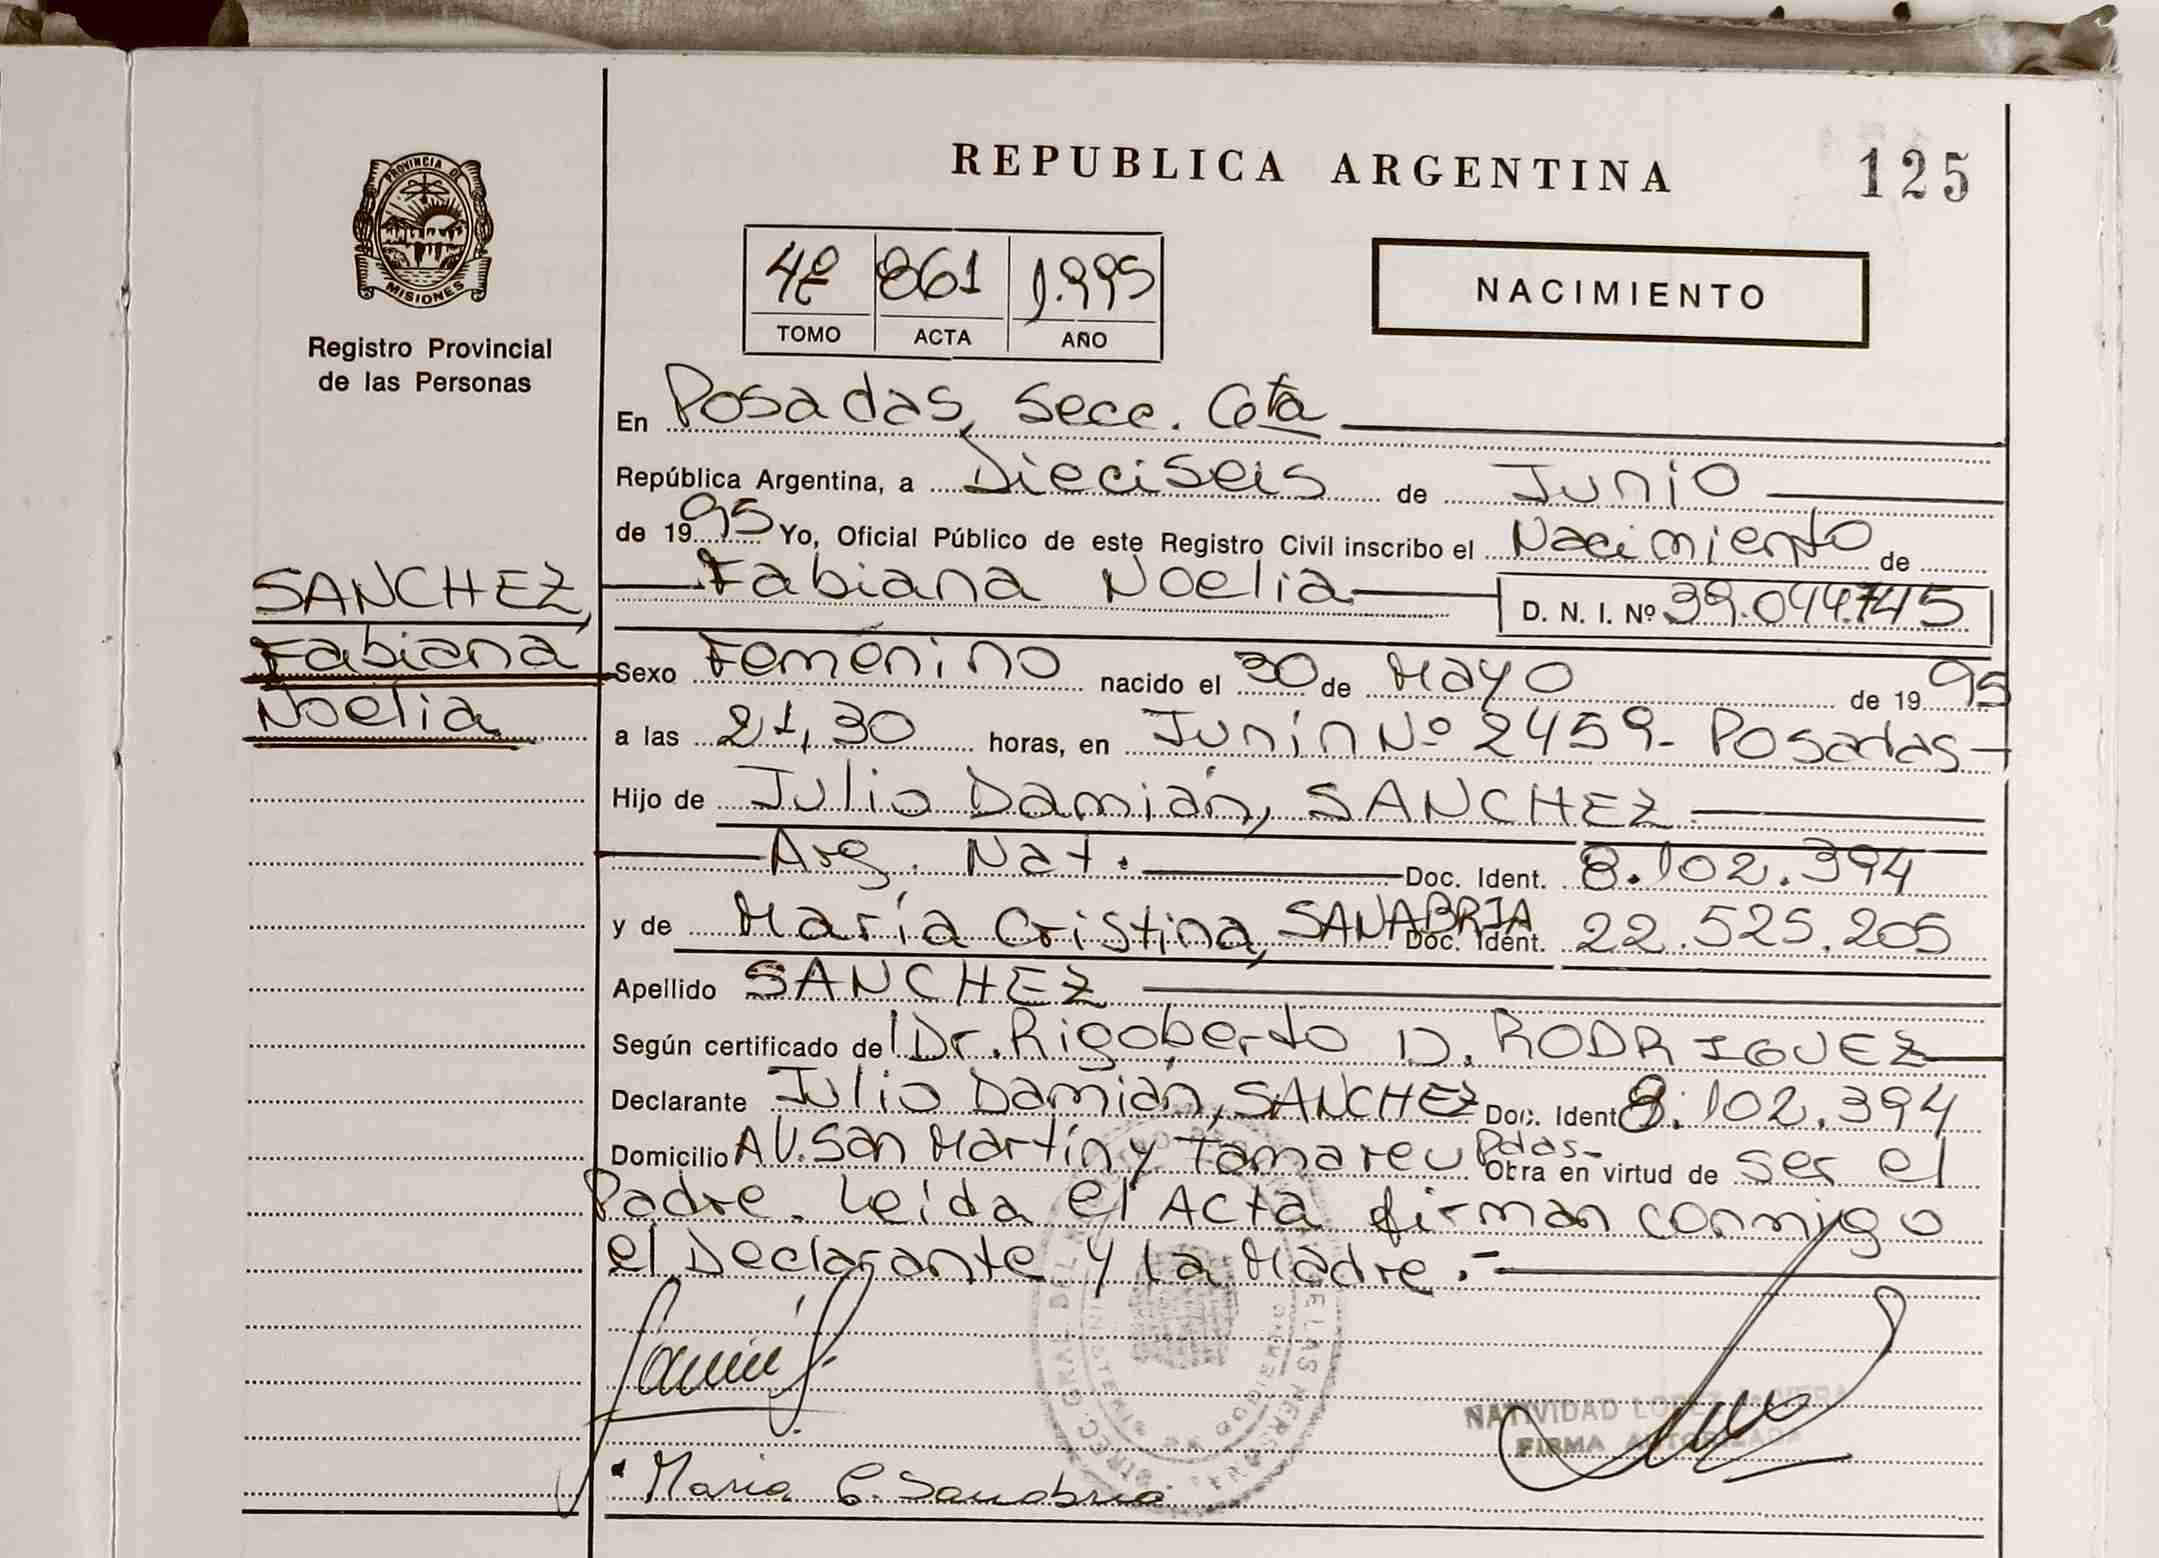 REPUBLICA ARGENTINA
125
PROVINCIA DE
MISIONES
Registro Provincial
de las Personas
4º 861 1.995
TOMO ACTA AÑO
NACIMIENTO
En Posadas, Secc. Cta
República Argentina, a Dieciseis de Junio
de 1995 Yo, Oficial Público de este Registro Civil inscribo el Nacimiento de
Fabiana Noelia D. N. I. Nº 39.044.745
SANCHEZ,
Fabiana
Noelia
Sexo Femenino nacido el 30 de Mayo de 1995
a las 21,30 horas, en Junín Nº 2459- Posadas-
Hijo de Julio Damián, SANCHEZ
Arg. Nat. Doc. Ident. 8.102.394
y de María Cristina, SANABRIA Doc. Ident. 22.525.205
Apellido SANCHEZ
Según certificado de Dr. Rigoberto D. RODRIGUEZ
Declarante Julio Damián, SANCHEZ Doc. Ident 8.102.394
Domicilio AV. San Martín y Tamareu Pdas- Obra en virtud de ser el
Padre. Leída el Acta firman conmigo
el Declarante y la Madre.-
NATIVIDAD LOPEZ
FIRMA AUTORIZADA
Maria C. Sanabria